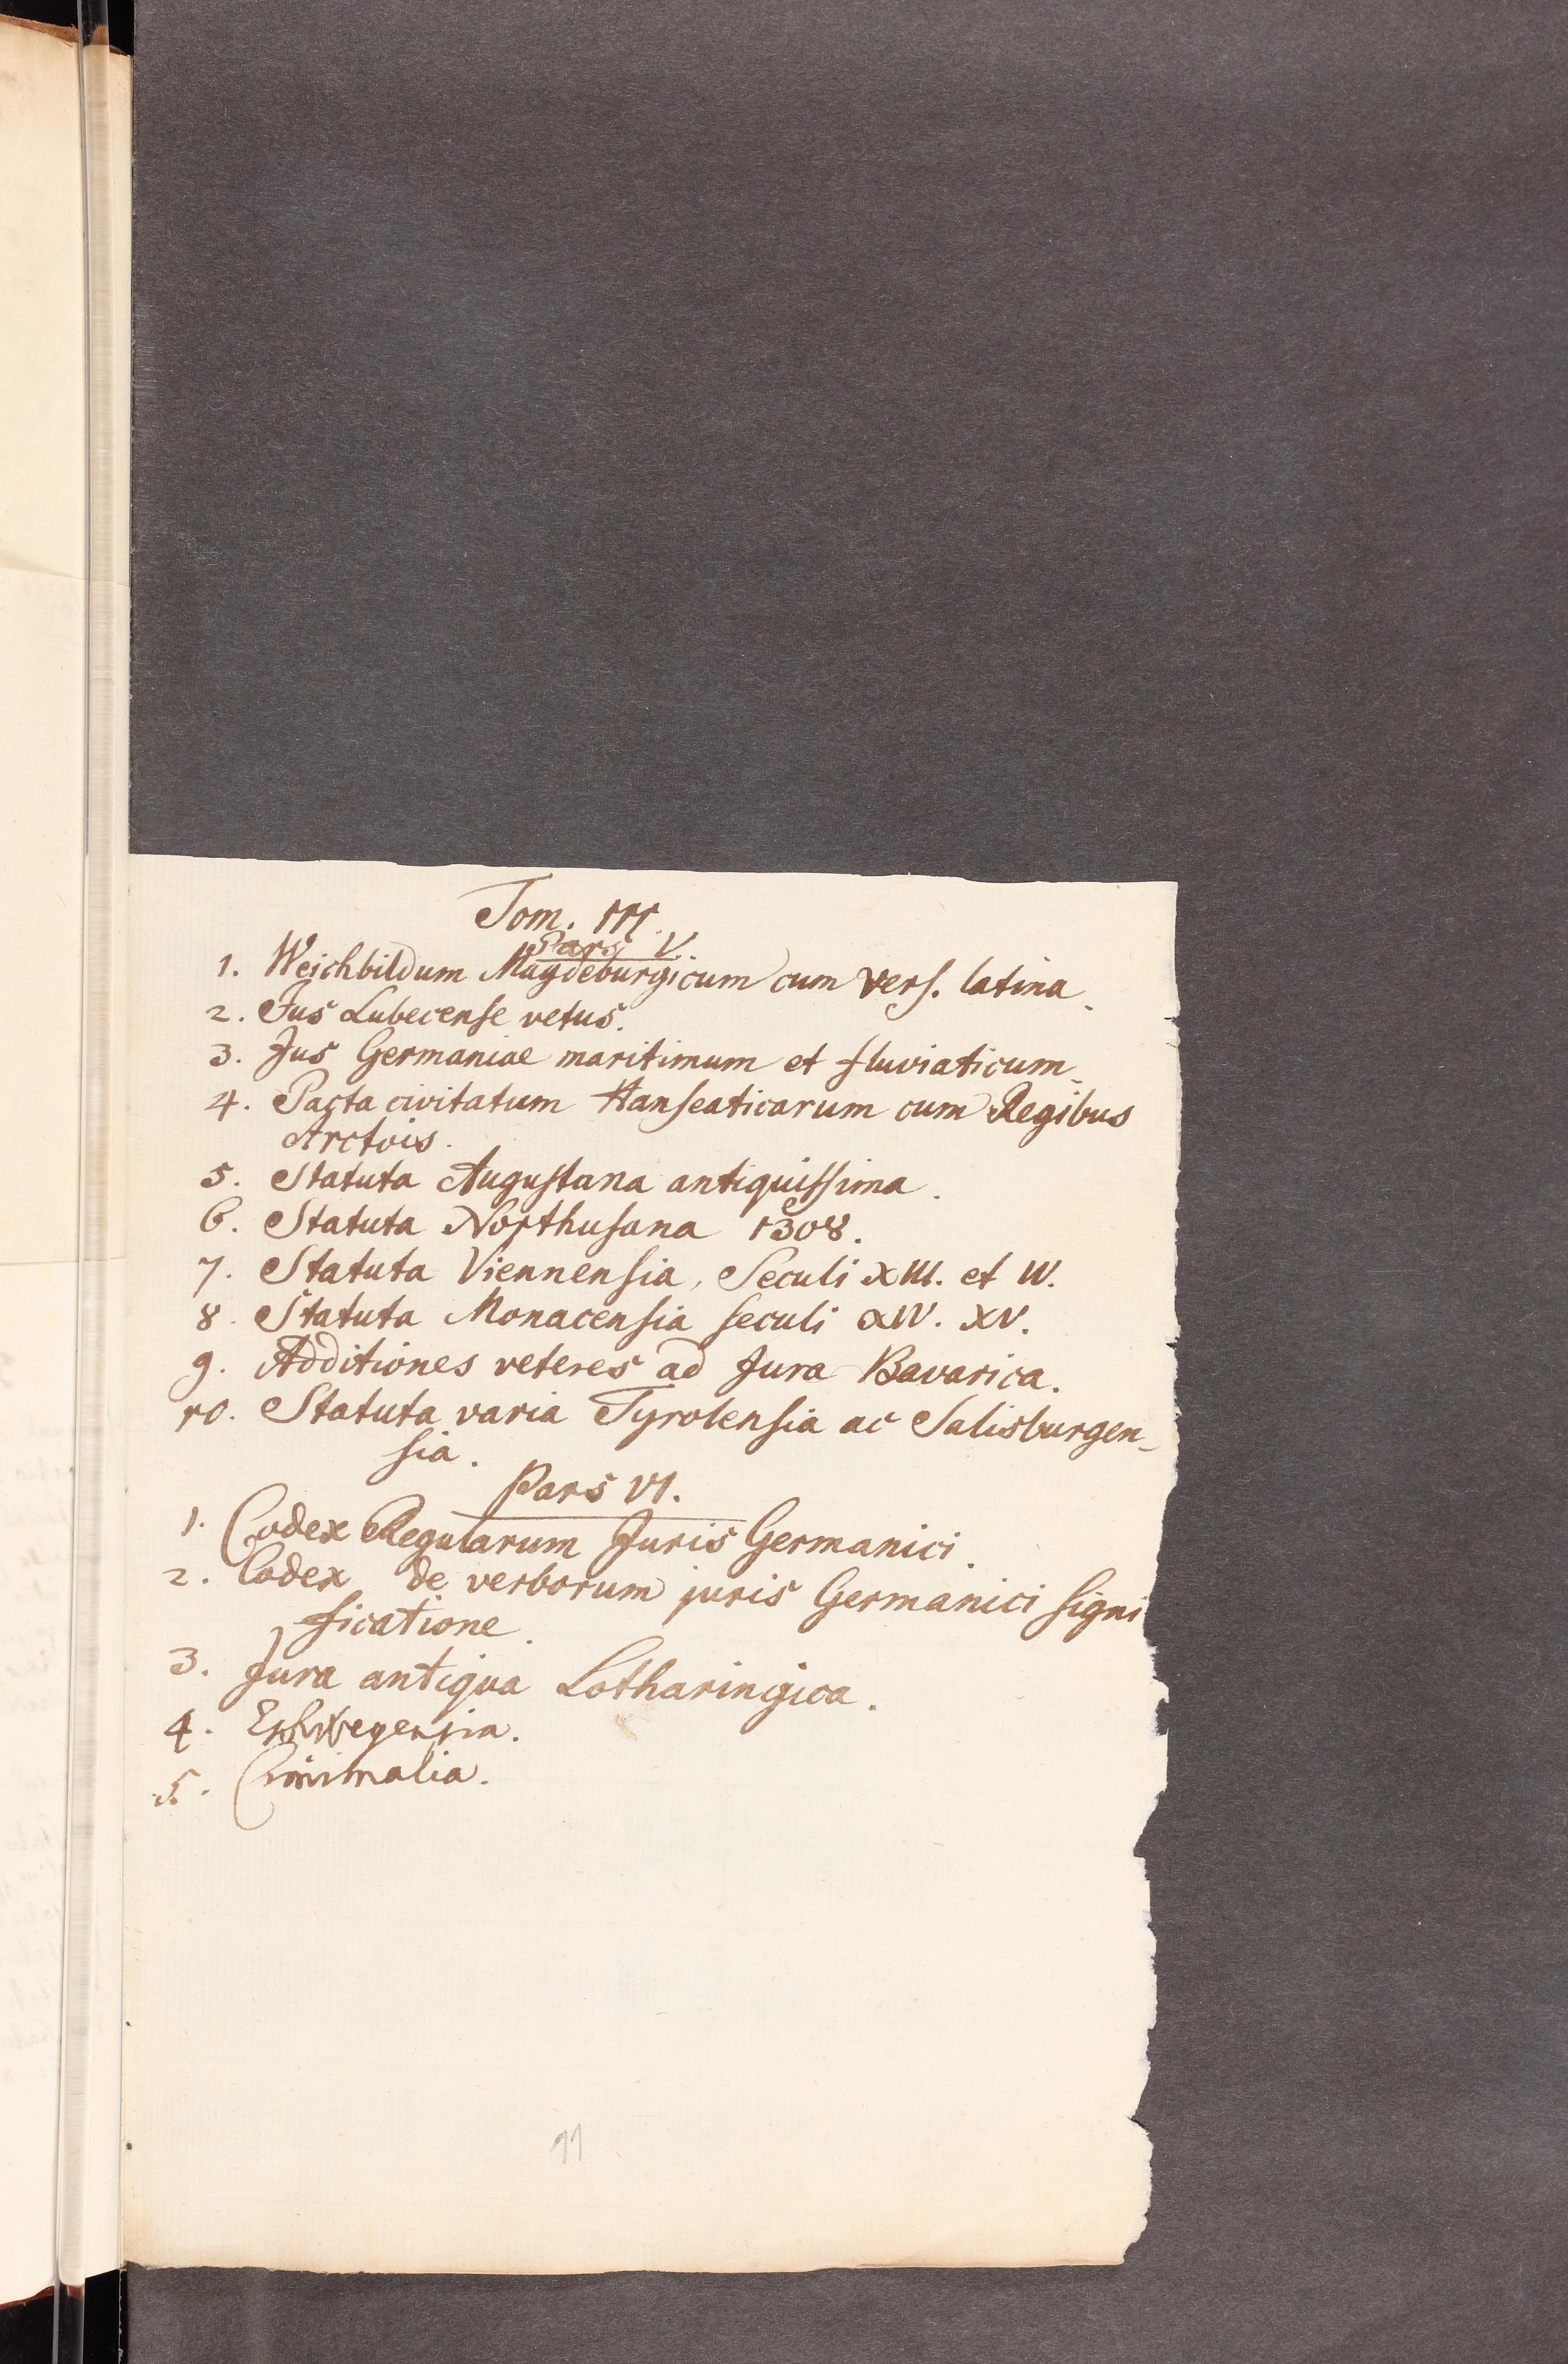 Tom. III.
Pars V.
1. Weichbildum Magdeburgicum cum vers. latina.
2. Jus Lubecense vetus.
3. Jus Germaniae maritimum et fluviaticum.
4. Pacta civitatum Hanseaticarum cum Regibus
Arctois.
5. Statuta Augustana antiquissima.
6. Statuta Northusana 1308.
7. Statuta Viennensia, Seculi XIII. et IV.
8. Statuta Monacensia seculi XIV. XV.
9. Additiones veteres ad Jura Bavarica.
10. Statuta varia Tyrolensia ac Salisburgen-
sia.
Pars VI.
1. Codex Regularum Juris Germanici.
2. Codex de verborum juris Germanici signi
ficatione.
3. Jura antiqua Lotharingica.
4. Eschwegensia.
5. Criminalia.